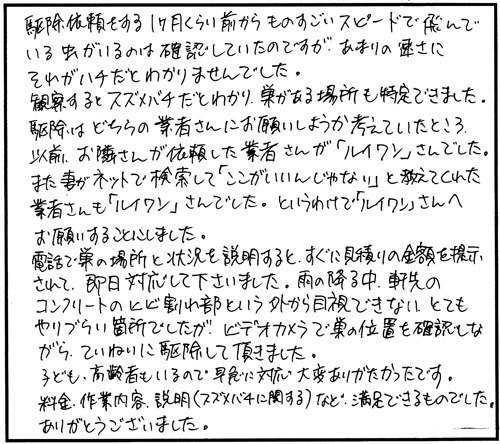 駆除依頼をする1ケ月くらい前からものすごいスピードで飛んで
いる虫がいるのは確認していたのですが、あまりの速さに
それがハチだとわかりませんでした。
観察するとスズメバチだとわかり、巣がある場所も特定できました。
駆除はどちらの業者さんにお願いしようか考えていたところ、
以前、お隣さんが依頼した業者さんが「ルイワン」さんでした。
また妻がネットで検索して「ここがいいんじゃない」と教えてくれた
業者さんも「ルイワン」さんでした。というわけで「ルイワン」さんへ
お願いすることにしました。
電話で巣の場所と状況を説明すると、すぐに見積りの金額を提示
されて、即日対応して下さいました。雨の降る中、軒先の
コンクリートのヒビ割れ部という外から目視できない、とても
やりづらい箇所でしたが、ビデオカメラで巣の位置を確認しな
がら、ていねいに駆除して頂きました。
子ども、高齢者もいるので早急に対応、大変ありがたかったです。
料金、作業内容、説明(スズメバチに関する)など、満足できるものでした。
ありがとうございました。